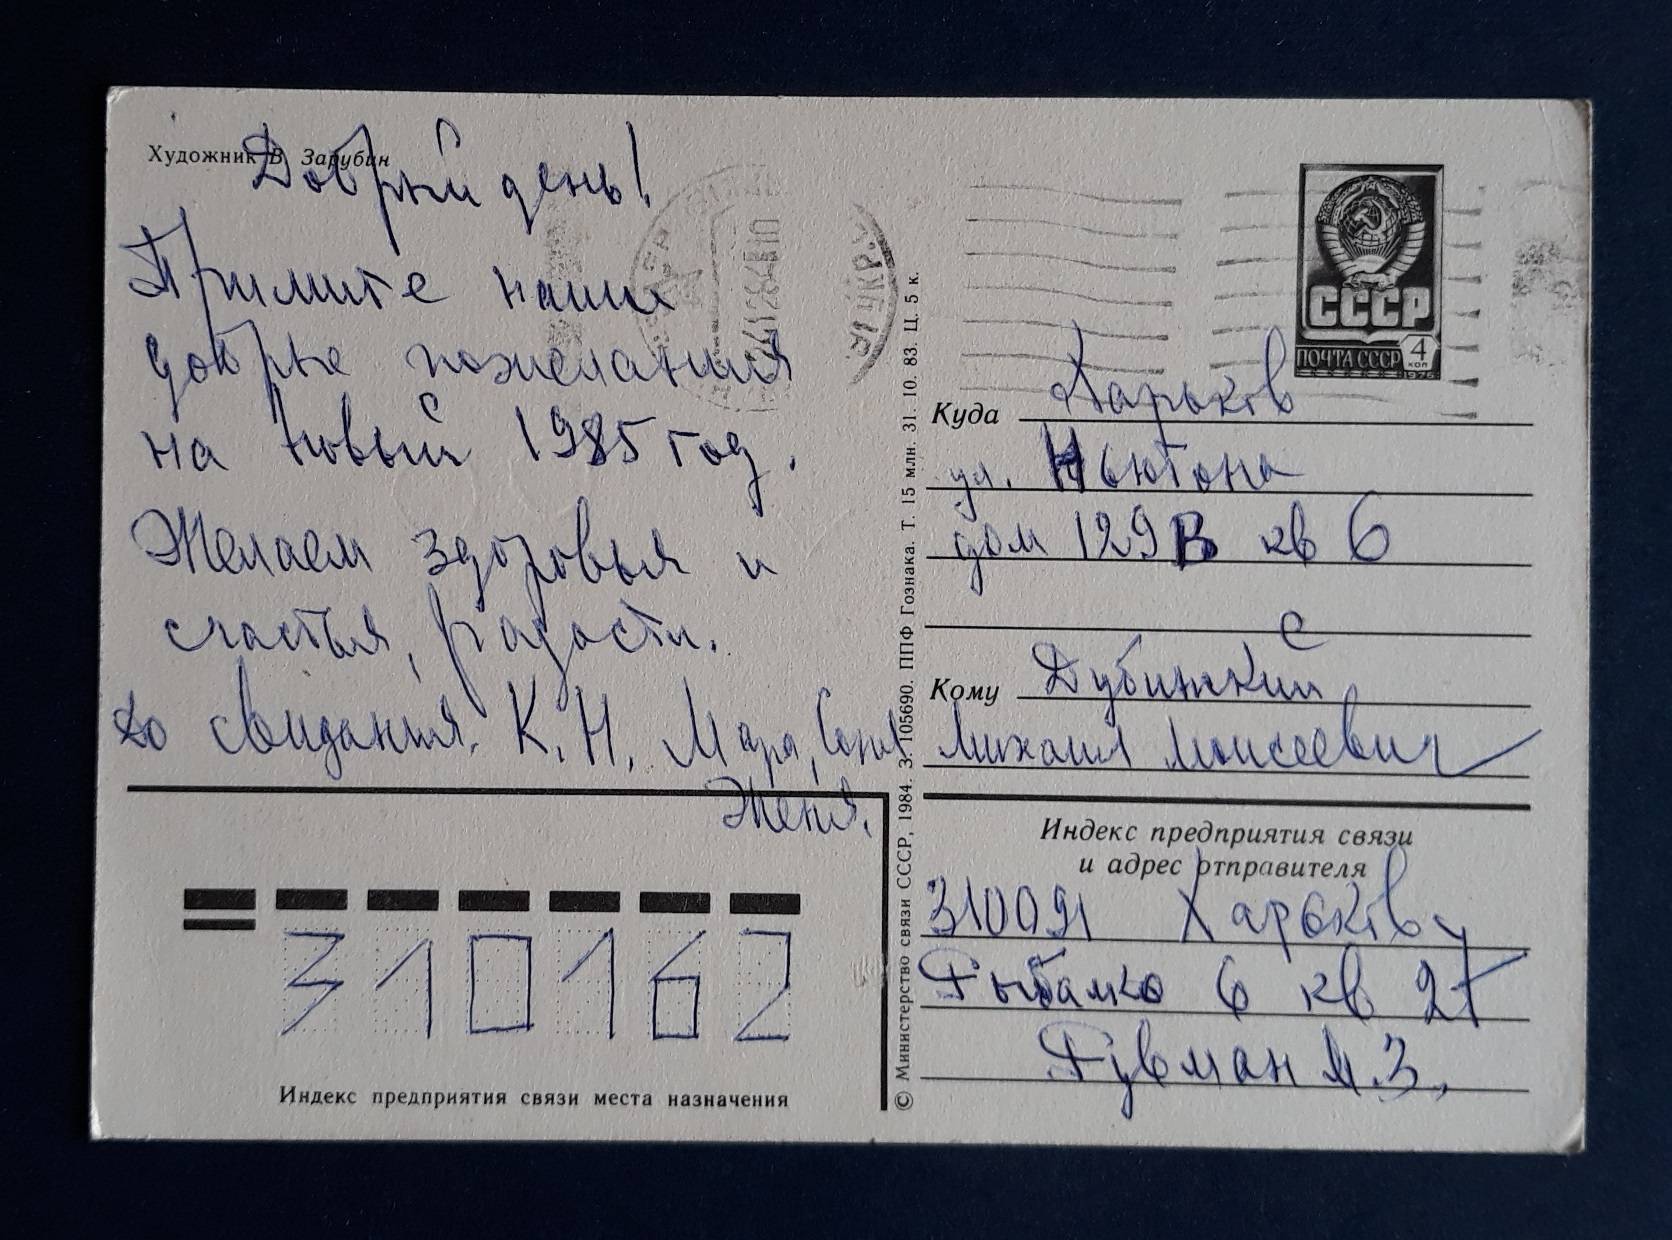 Художник В. Зарубин
Добрый день!
Примите наши
добрые пожелания
на Новый 1985 год.
Желаем здоровья и
счастья, радости.
До свидания. К. Н. Мара, Соня
Женя.
310162
Индекс предприятия связи места назначения
© Министерство связи СССР, 1984. З. 105690. ППФ Гознака. Т. 15 млн. 31. 10. 83. Ц. 5 к.
СССР
ПОЧТА СССР 4 коп
1975
Куда Харьков
ул. Ньютона
дом 129 В кв 6
Кому
Михаил Моисеевич
Индекс предприятия связи
и адрес отправителя
310091 Харьков
Рыбалко 6 кв 27